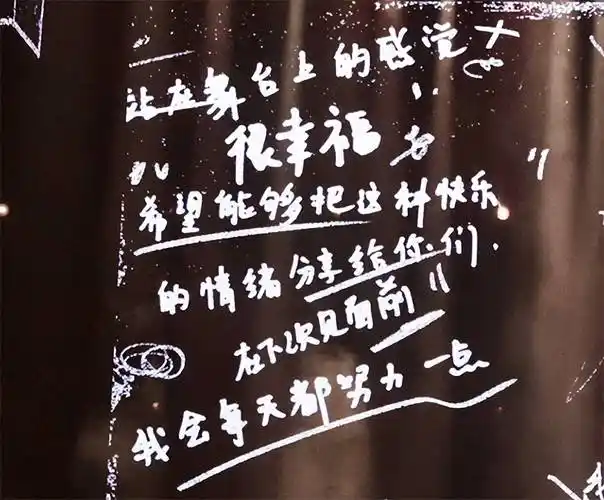 站在舞台上的感觉
很幸福
希望能够把这种快乐
的情绪分享给你们.
在下次见面前
我会每天都努力一点